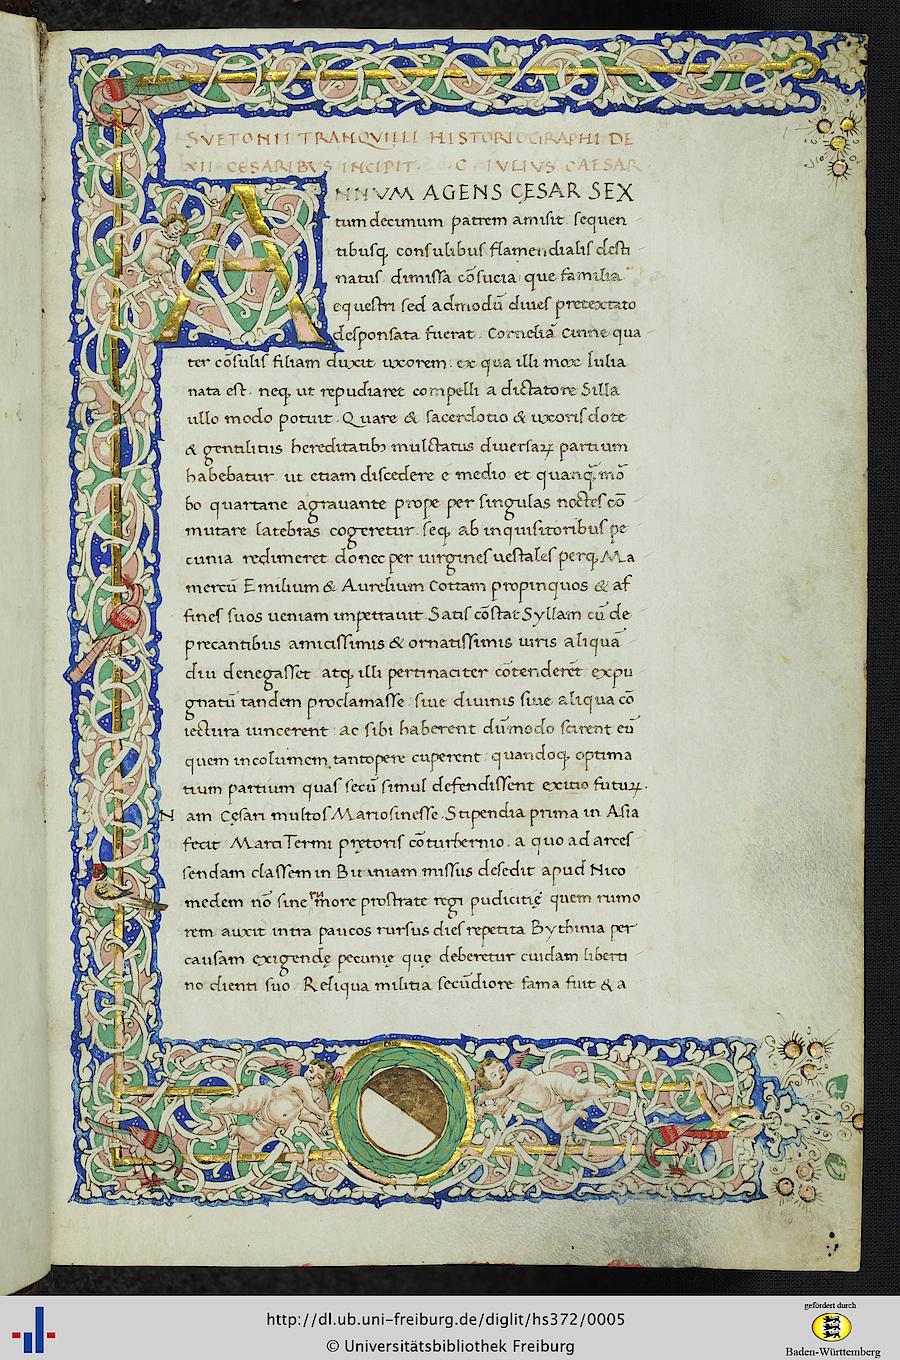 SVETONII TRANQVILLI HISTORIOGRAPHI DE
XII CESARIBVS INCIPIT C IVLIVS CAESAR
ANNVM AGENS CĘSAR SEX
tum decimum patrem amisit sequen
tibusq, consulibus flamendialis desti
natus dimissa cōsucia que familia
equestri sed admodū dives pretextato
desponsata fuerat. Corneliā Cinne qua
ter cōsulis filiam duxit uxorem: ex qua illi mox Iulia
nata est. neq, ut repudiaret compelli a dictatore Silla
ullo modo potuit. Quare & sacerdotio & uxoris dote
& gentilitiis hereditatib; mulctatus diversaꝝ partium
habebatur ut etiam discedere e medio et quanq̄ mō
bo quartane agravante prope per singulas noctes cō
mutare latebras cogeretur: seq, ab inquisitoribus pe
cunia redimeret donec per uirgines uestales perq, Ma
mercū Emilium & Aurelium Cottam propinquos & af
fines suos ueniam impetravit. Satis cōstat Syllam cū de
precantibus amicissimis & ornatissimis uiris aliquā
diu denegasset atq, illi pertinaciter cōtenderēt expu
gnatū tandem proclamasse: siue diuinis siue aliqua cō
iectura uincerent ac sibi haberent dūmodo scirent eū
quem incolumem tantopere cuperent quandoq, optima
tium partium quas secū simul defendissent exitio futuꝝ.
Nam Cęsari multos Marios inesse. Stipendia prima in Asia
fecit Marci Termi prętoris cōturbernio. a quo ad arces
sendam classem in Bituniam missus desedit apud Nico
medem nō sine more prostrate regi pudicitię quem rumo
rem auxit intra paucos rursus dies repetita Bythinia per
causam exigendę pecunię quę deberetur cuidam liberti
no clienti suo. Reliqua militia secūdiore fama fuit & a
http://dl.ub.uni-freiburg.de/diglit/hs372/0005
© Universitätsbibliothek Freiburg
gefördert durch
Baden-Württemberg